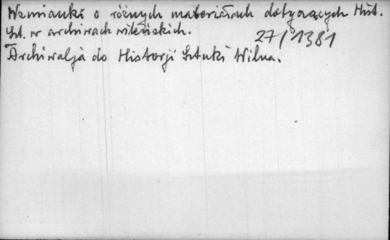 Wzmianki o różnych materiałach dotyczących Hist.
Szt. w archiwach wileńskich.
27/1381
Archiwalja do Historji Sztuki Wilna.